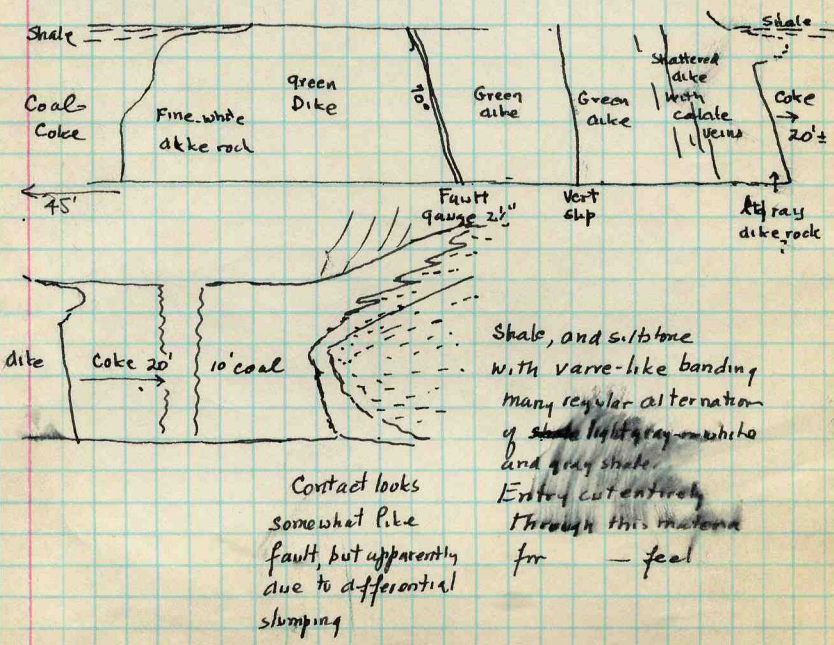 Shale
Shale
Coal-
Coke
Fine white
dike rock
green
Dike
70°
Green
dike
Green
dike
Shattered
dike
with
calcite
veins
Coke
20'±
45'
Fault
gauge 2½"
Vert
slip
gray
dike rock
?
dike
Coke 20'
10' coal
Shale, and siltstone
with varve-like banding
many regular alternation
of light gray white
and gray shale.
Entry cut entirely
through this material
for — feet
Contact looks
somewhat like
fault, but apparently
due to differential
slumping